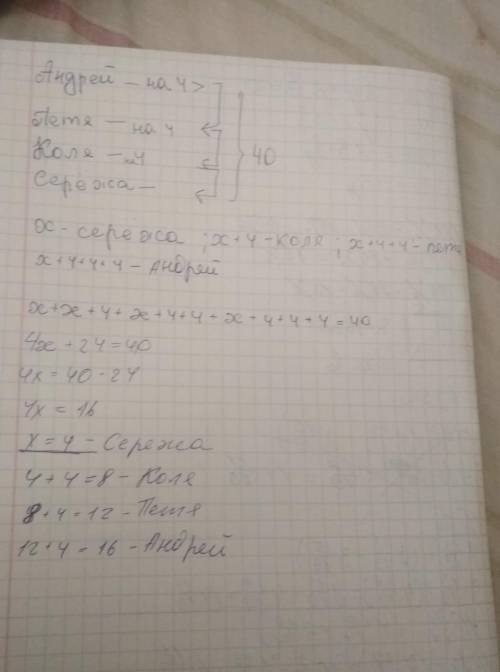 Андрей – на 4 >
Петя – на 4
Коля – 4
Сережа –
40
x – сережа ; x+4 – коля ; x+4+4 – петя
x+4+4+4 – Андрей
x+x+4+x+4+4+x+4+4+4=40
4x+24=40
4x=40-24
4x=16
x=4 – Сережа
4+4=8 – Коля
8+4=12 – Петя
12+4=16 – Андрей